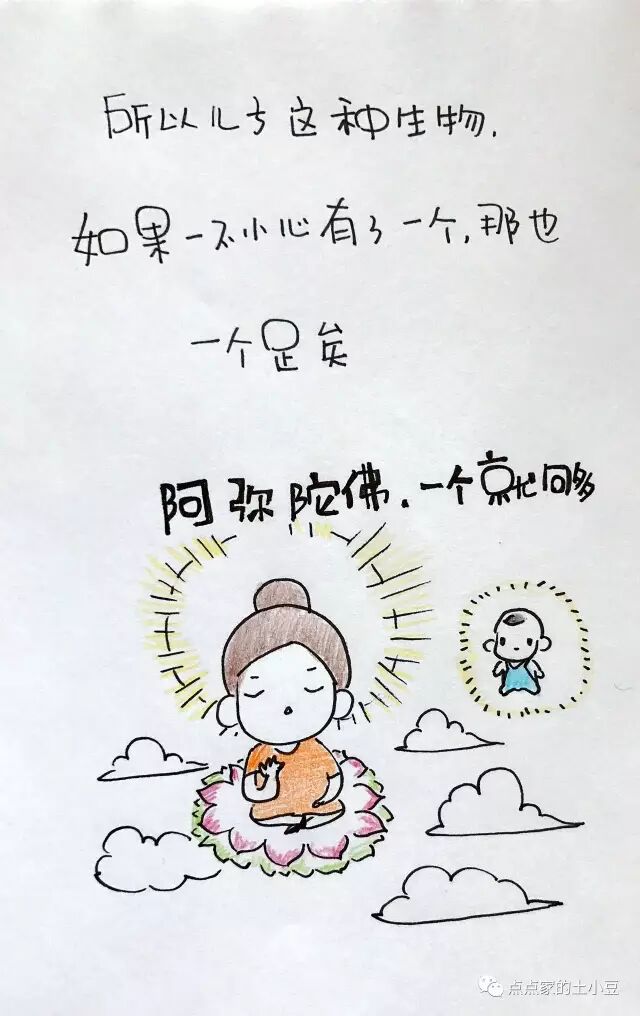 所以儿子这种生物,
如果一不小心有了一个,那也
一个足矣
阿弥陀佛.一个就够
点点家的土小豆